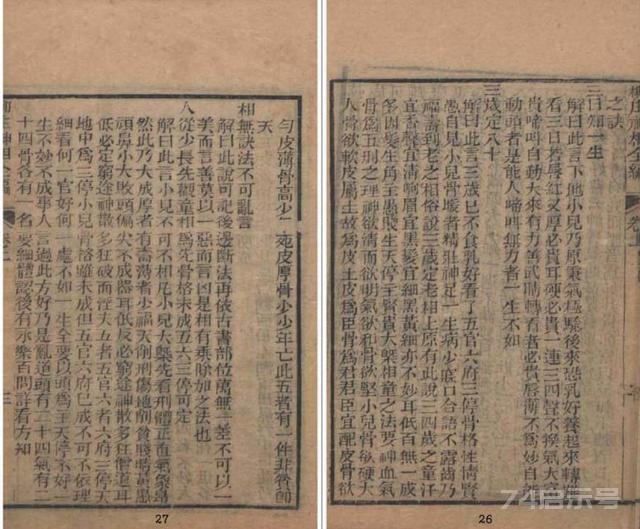 之訣
三日知一生
解曰此言下他小兒乃原秉氣極驗後來恐乳好養起來轉
看三日若唇紅又厚必貴耳硬必貴一連三四聲不換氣大富
貴啼叫自動大來有力善武睛轉看者必貴唇薄不爲妙自能
動頭者是能人啼叫無力者一生不如
三歲定八十
解曰此言三歲已不食乳好看了五官六府三停骨格性情賢
愚自見小兒骨堅者精壯神足一生病少底口合語不露齒乃
福壽到老之相俗說三歲定老相上原有此說三四歲之童汗
多因髮聲宜清响眉宜黑髮宜細黑黃細亦不妙耳低百無一成
骨宜正生方成骨少年不停至賢真大槩相童之法要神血氣
骨爲五行之理神欲而欲明氣欲和骨欲堅小兒骨欲硬大
人骨欲軟血氣生大故爲皮土皮爲臣骨爲君君臣宜配皮骨欲
26
勻皮薄骨高少一死皮厚骨少少年亡此五者有一件非賢卽
夭
相無訣法不可亂言
解曰此說可記後邊斷法再依古書部位萬無一差不可以一
美而言善莫以一惡而言凶是相有乘除加之法也
人從少長先觀童相爲先骨格未成五六三停可定
解曰此言一人不可尼相小兒大槩先看刑體正直氣槩昂
然此乃大成厚者有壽薄者少福天削刑傷地削貧賤昏黃愚
頑鼻小大敗頭偏尖不成器耳低反必窮途神散多狂僧道耳
低必主窮途神散多狂破而淫天五者五官六者六府三停天
地中爲三停小兒骨格雖未成但五官六府已成不可不依理
細看何一官好何一處不如一生全要以頭爲主天停不好一
生不妙不成事人言過此方好乃是亂道頭有二十四氣有二
十四骨各有一名要細體認後有永樂百問詳看方知
27
74启示号